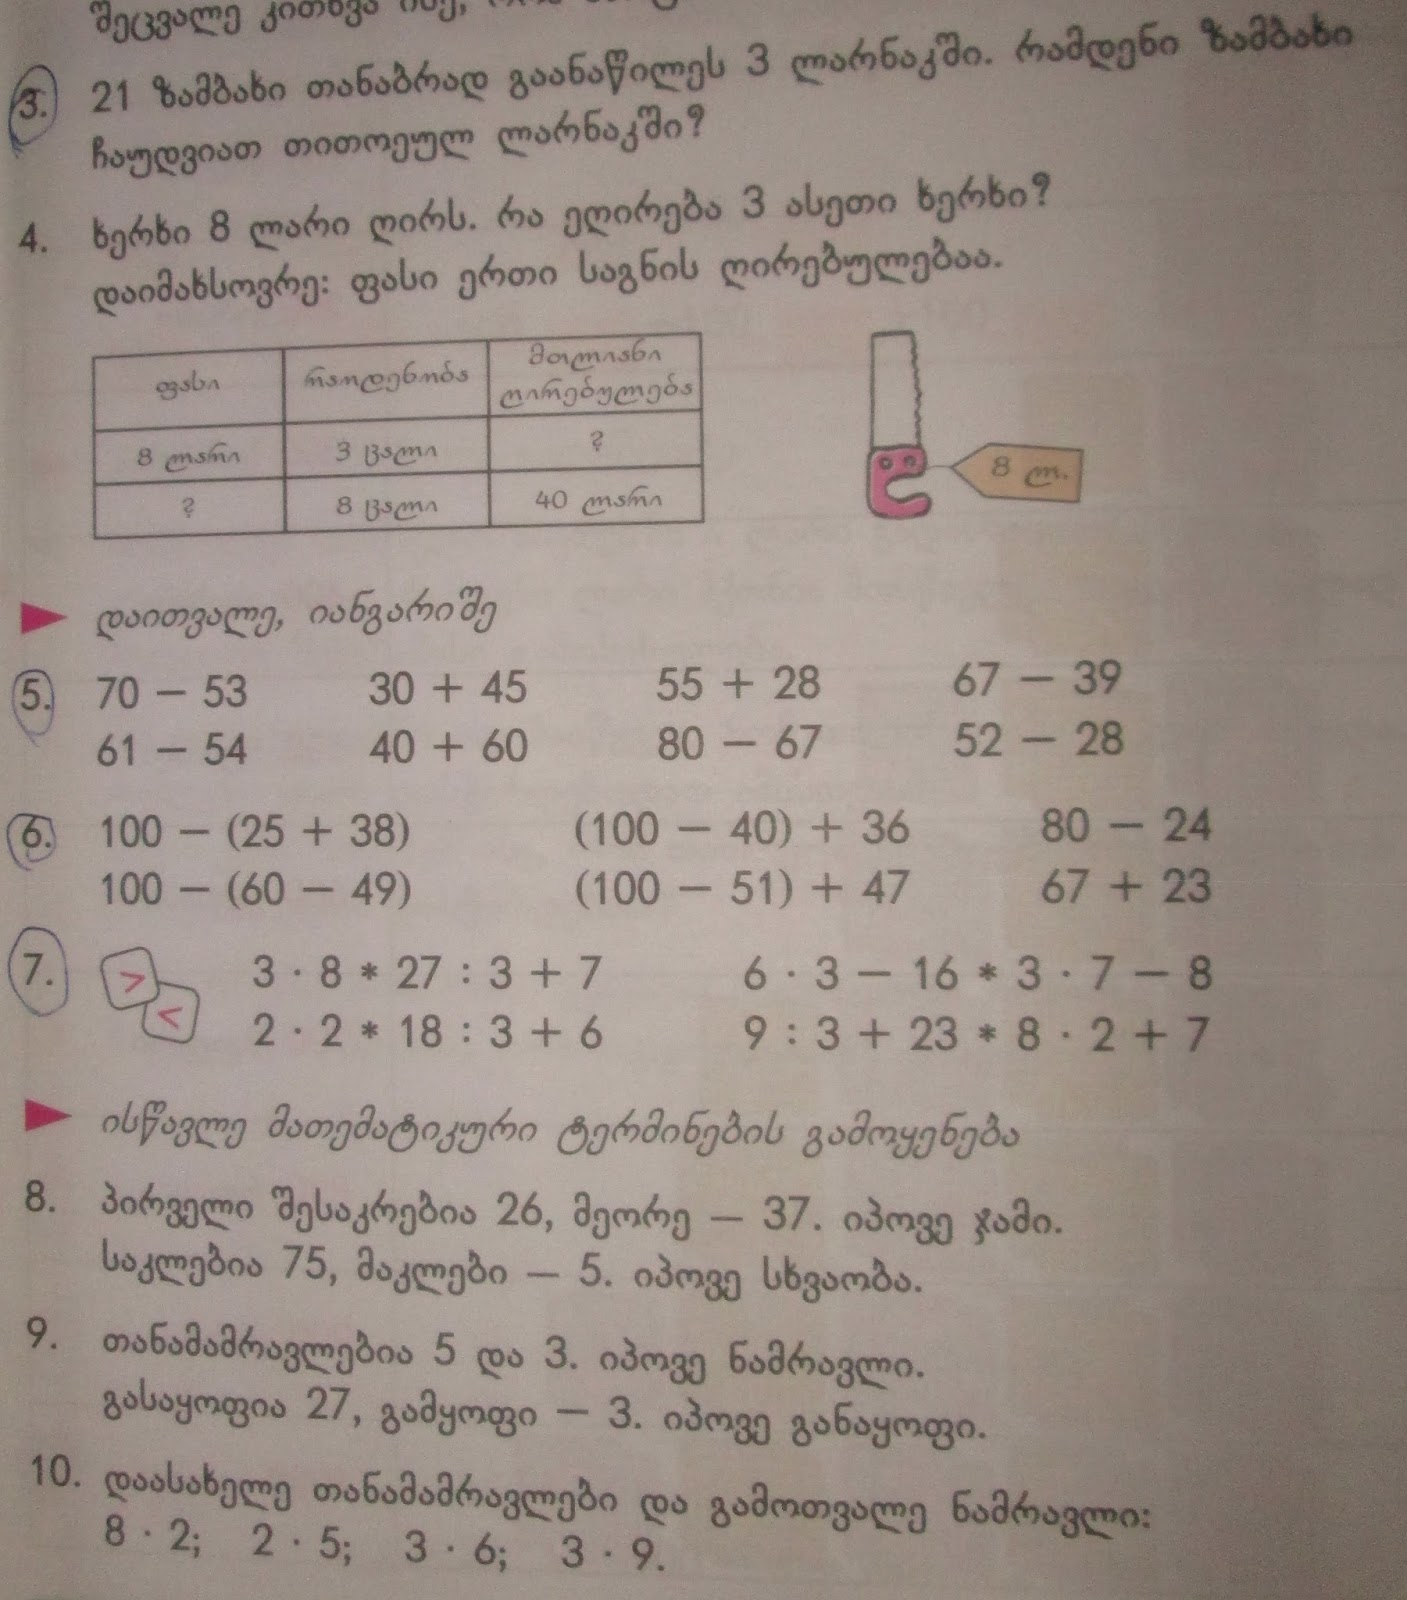 შეცვალე კითხვა ისე,
3. 21 ზამბახი თანაბრად გაანაწილეს 3 ლარნაკში. რამდენი ზამბახი
ჩაუდვიათ თითოეულ ლარნაკში?
4. ხერხი 8 ლარი ღირს. რა ეღირება 3 ასეთი ხერხი?
დაიმახსოვრე: ფასი ერთი საგნის ღირებულებაა.
ფასი რაოდენობა მთლიანი ღირებულება
8 ლარი 3 ცალი ?
? 8 ცალი 40 ლარი
8 ლ.
დაითვალე, იანგარიშე
5. 70 – 53 30 + 45 55 + 28 67 – 39
61 – 54 40 + 60 80 – 67 52 – 28
6. 100 – (25 + 38) (100 – 40) + 36 80 – 24
100 – (60 – 49) (100 – 51) + 47 67 + 23
7. > 3 · 8 * 27 : 3 + 7 6 · 3 – 16 * 3 · 7 – 8
< 2 · 2 * 18 : 3 + 6 9 : 3 + 23 * 8 · 2 + 7
ისწავლე მათემატიკური ტერმინების გამოყენება
8. პირველი შესაკრებია 26, მეორე – 37. იპოვე ჯამი.
საკლებია 75, მაკლები – 5. იპოვე სხვაობა.
9. თანამამრავლებია 5 და 3. იპოვე ნამრავლი.
გასაყოფია 27, გამყოფი – 3. იპოვე განაყოფი.
10. დაასახელე თანამამრავლები და გამოთვალე ნამრავლი:
8 · 2; 2 · 5; 3 · 6; 3 · 9.